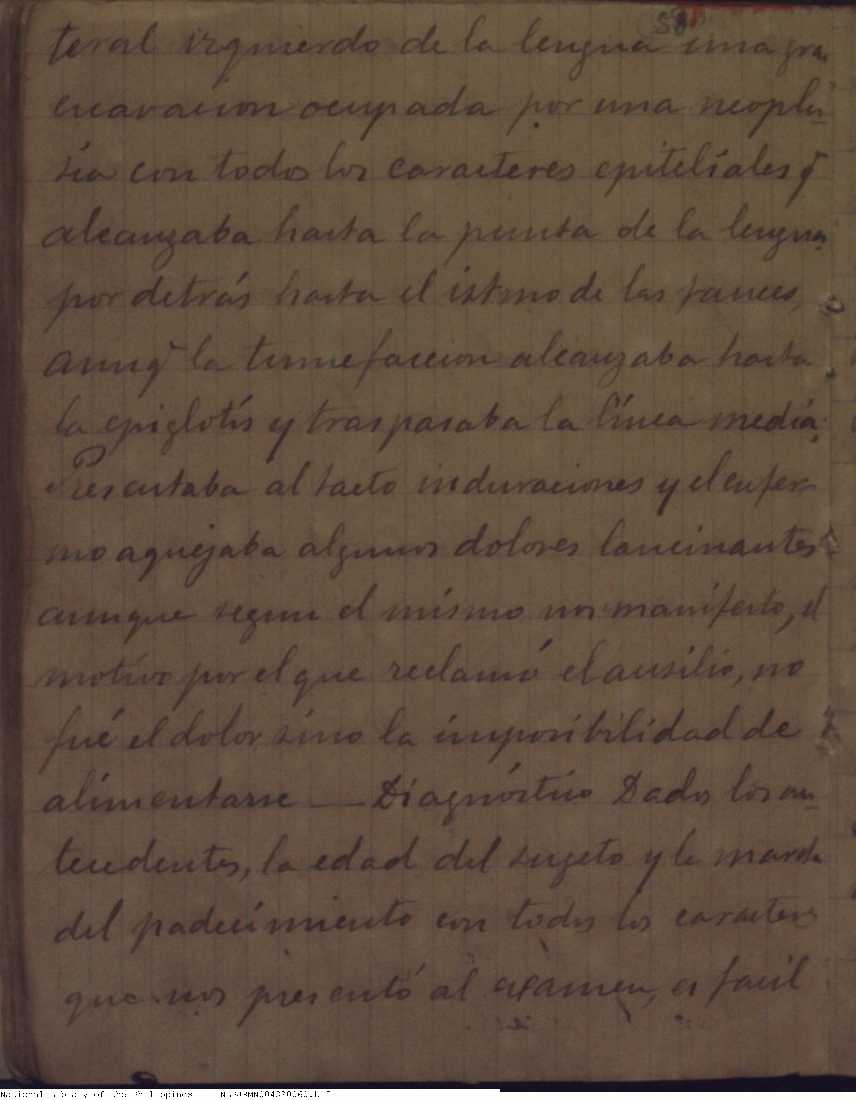 58
teral izquierdo de la lengua una gran
excavacion ocupada por una neopla-
sia con todos los caracteres epiteliales q̃
alcanzaba hasta la punta de la lengua,
por detrás hasta el istmo de las fauces,
aunq̃ la tumefaccion alcanzaba hasta
la epiglotis y traspasaba la línea media.
Presentaba al tacto induraciones y el enfer-
mo aquejaba algunos dolores lancinantes
aunque segun el mismo nos manifesto, el
motivo por el que reclamó el ausilio, no
fué el dolor sino la imposibilidad de
alimentarse — Diagnóstico Dados los an-
tecedentes, la edad del sugeto y la marcha
del padecimiento con todos los caracteres
que nos presentó al examen, es facil
National Library of the Philippines